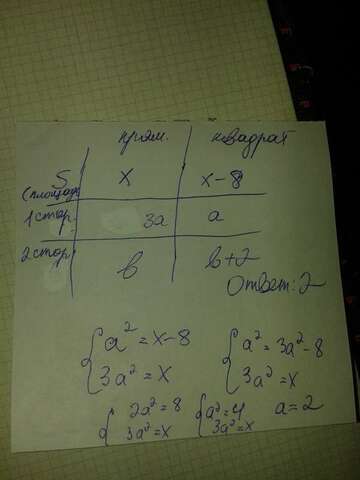 прям. квадрат
S x x-8
(площадь)
1 стор. 3a a
2 стор. b b+2
Ответ: 2
{a² = x-8 {a² = 3a²-8
3a² = x 3a² = x
{2a² = 8 {a² = 4 a = 2
3a² = x 3a² = x